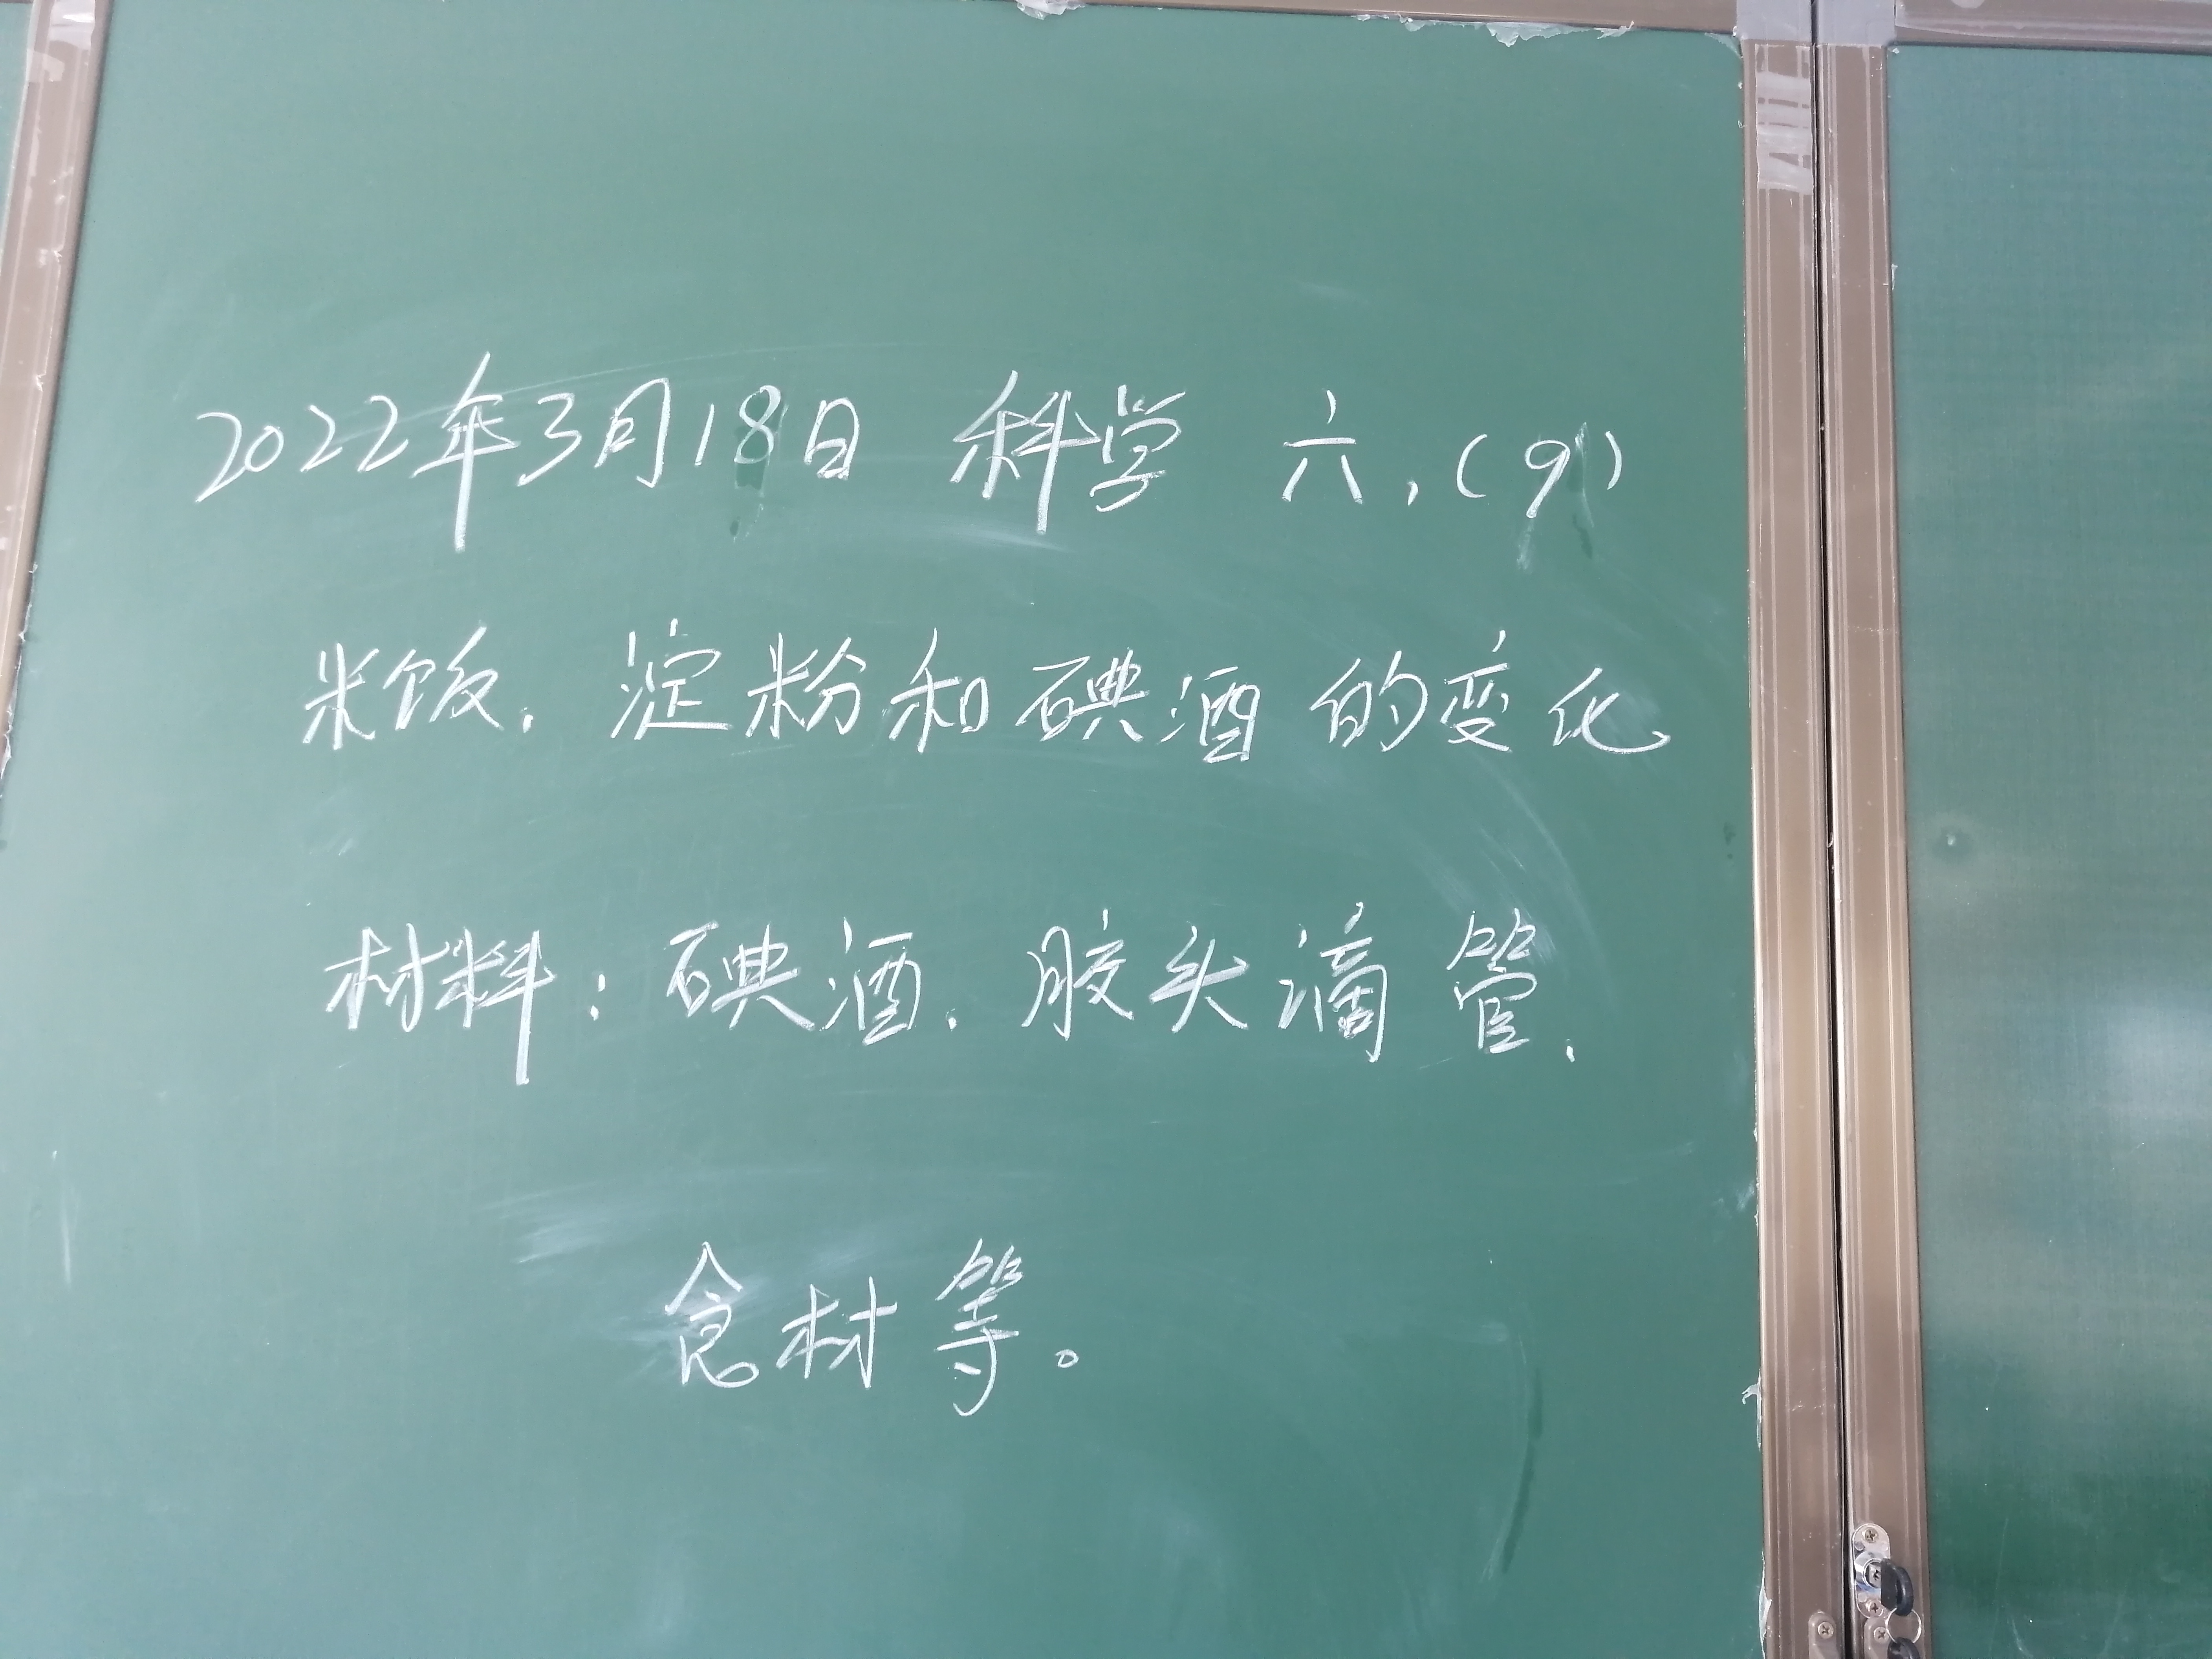 2022年3月18日 科学 六,(9)
米饭、淀粉和碘酒的变化
材料:碘酒、胶头滴管、
食材等。